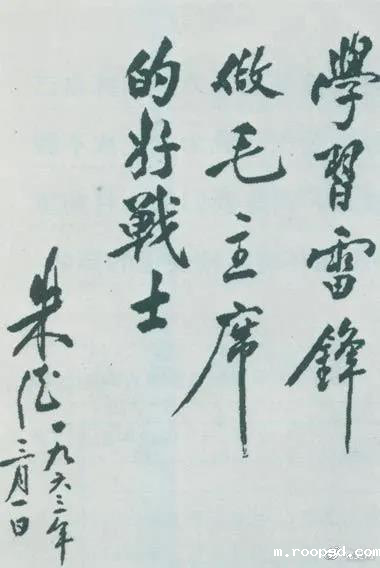 學習雷鋒
做毛主席
的好戰士
朱德
一九六三年
三月一日
m.roopgd.com